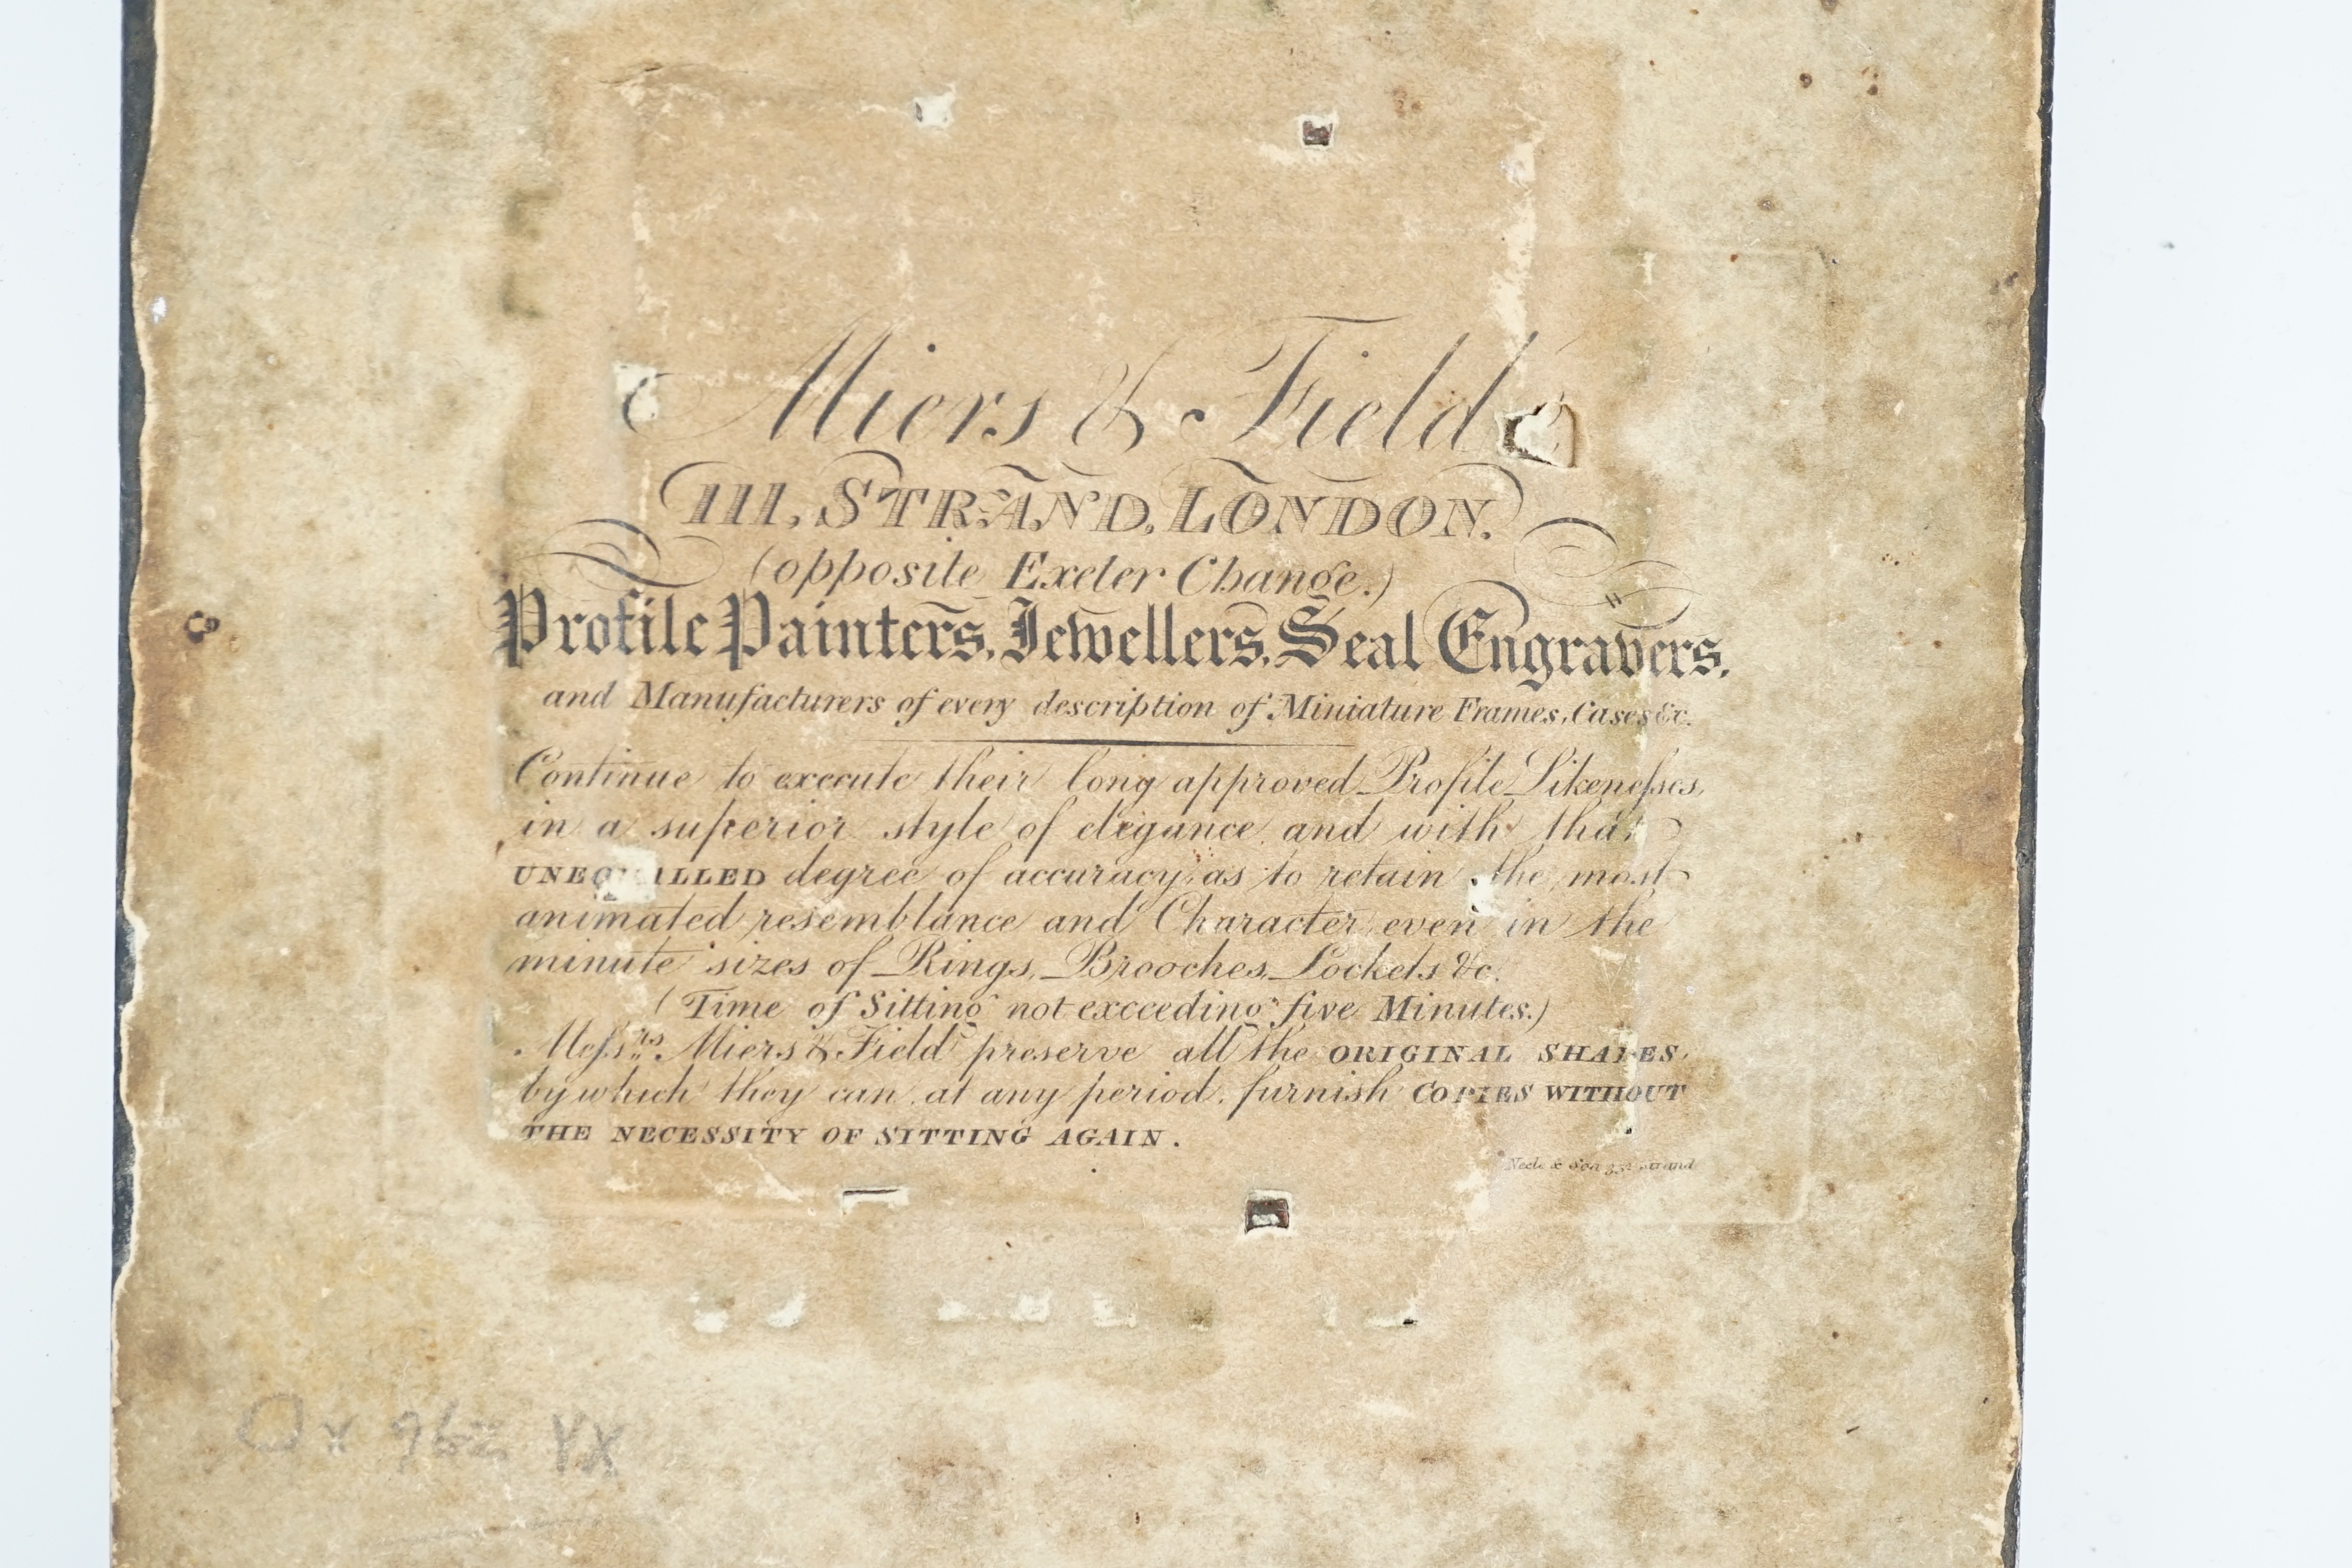 Miers & Field
111, STRAND, LONDON.
(opposite Exeter Change.)
Profile Painters, Jewellers, Seal Engravers,
and Manufacturers of every description of Miniature Frames, Cases &c.
Continue to execute their long approved Profile Likeneſses,
in a superior style of elegance, and with that
UNEQUALLED degree of accuracy, as to retain the most
animated resemblance and Character, even in the
minute sizes of Rings, Brooches, Lockets &c.
(Time of Sitting not exceeding five Minutes.)
Meſsrs. Miers & Field preserve all the ORIGINAL SHADES,
by which they can, at any period, furnish COPIES WITHOUT
THE NECESSITY OF SITTING AGAIN.
Neele & Son 352 Strand